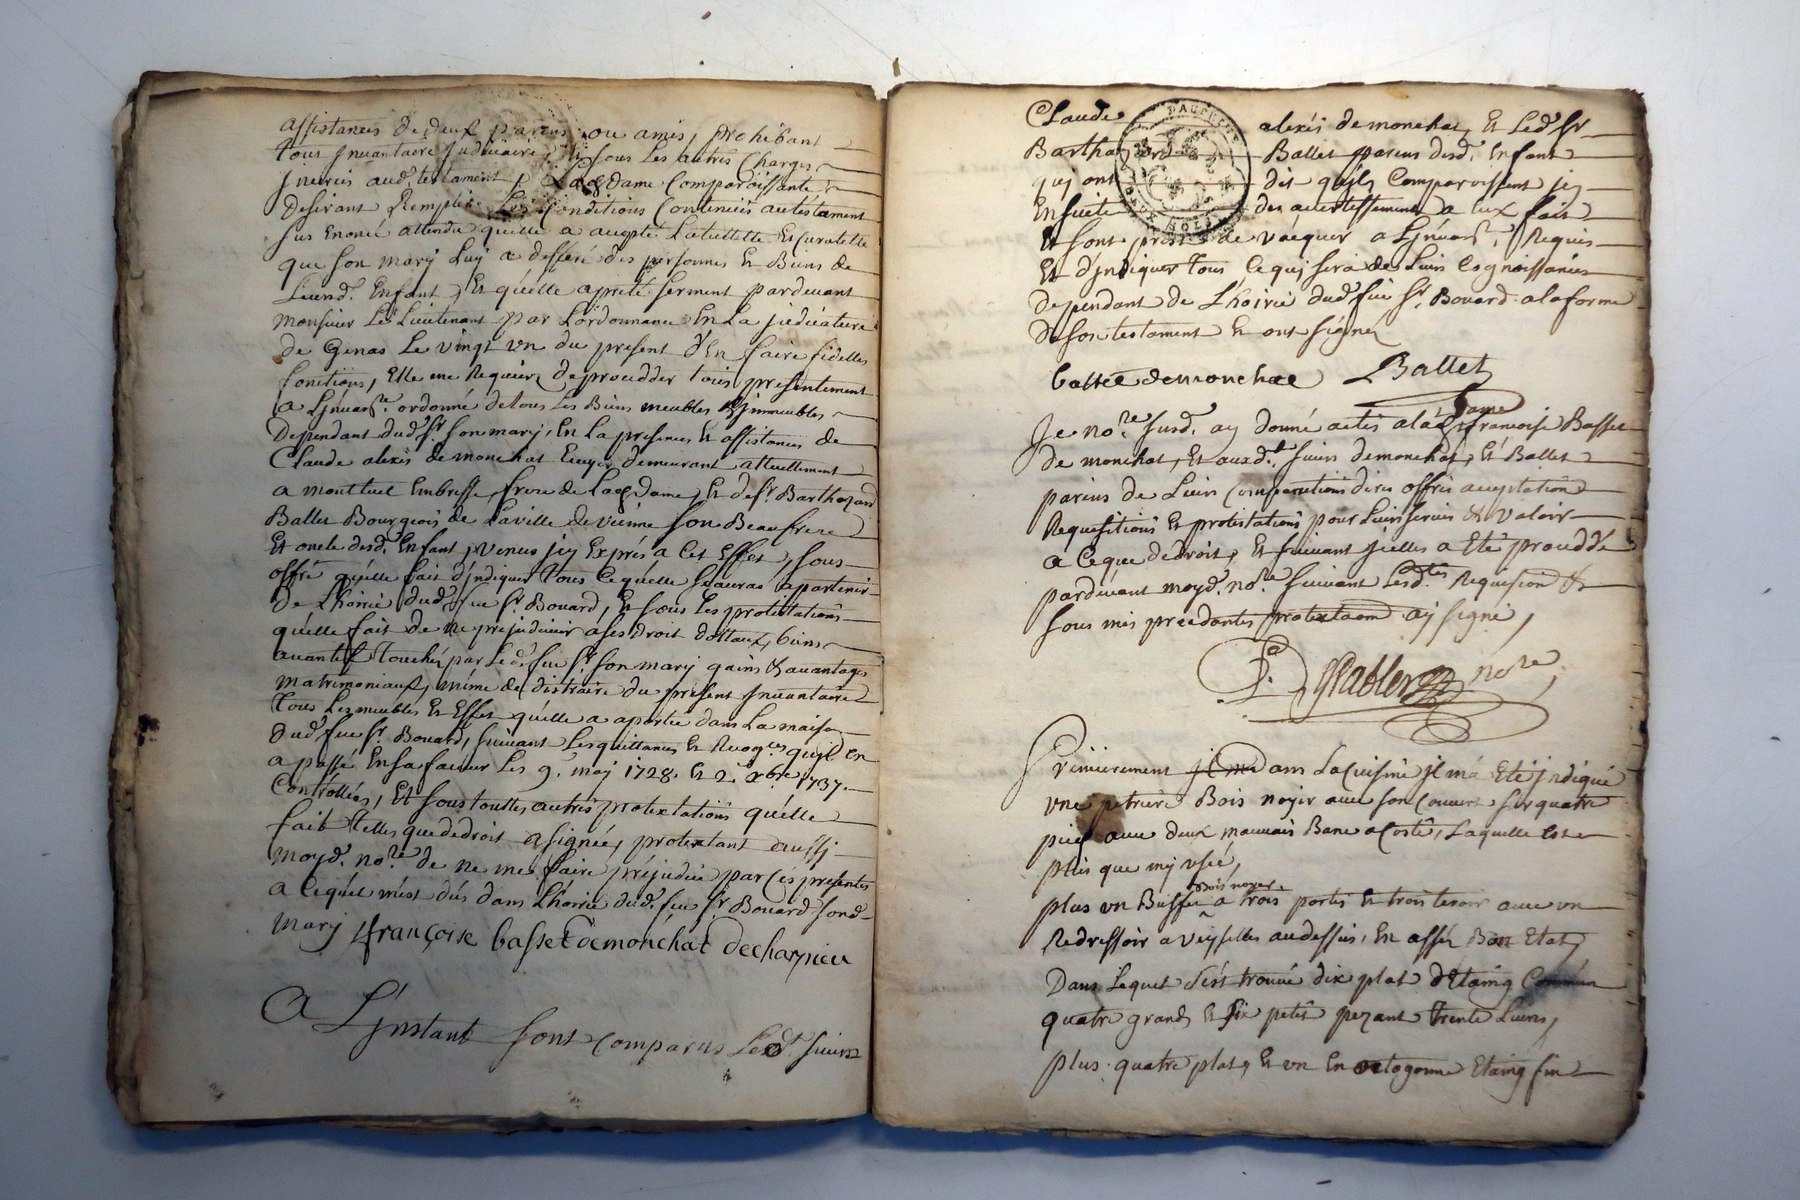 assistances de deux parens ou amis, prohibant
tous jnvantaire judiciaire, et sous les autres charges
jnserées aud. testament, Lad. dame comparoissante
desirant remplir les conditions contenues au testament
sus enoncé attendu quelle a accepté la tutelle et curatelle
que son mary luy a defferé des personnes et Biens de
leurd. Enfant, Et quelle a preté serment pardevant
monsieur le Lieutenant par l'ordonnance En La judicature
de Genas Le vingt un du present d'En faire fidelles
fonctions, Elle me Requiert de procedder tout presentement
a L'jnvare. ordonné de tous Les Biens meubles & jmmeubles
Dependant dud. sr. son mary, En La presence Et assistances de
Claude alexis de monchat Ecuyer demeurant attuellement
a montluel Embresse, frere de Lad. dame, Et de sr. Barthazard
Ballet Bourgeois de La ville de vienne son Beaufrere
Et oncle desd. Enfant, venus jcy Exprés a Cet Effet, sous
offre quelle fait d'jndiquer tous ce quelle scauras apartenir
de L'hoirie dud. feu sr. Bouard, Et sous les protestations
quelle fait de ne prejudicier a ses droit dottaux, biens
avantés touchés par Led. feu sr. son mary gains & avantages
matrimoniaux, méme de distraire du present jnvantaire
Tous Les meubles Et Effet quelle a aportée dans La maison
dud. feu sr. Bouard, suivant Les quittances Et Recog.ces quil en
a passé En sa faveur les 9. may 1728. Et 2. xbre 1737.
Contrôllées, Et sous touttes autres protextations quelle
fait telles que de droit a signée, protextant aussi
moyd. nore. de ne me faire préjudice par ces presentes
a Ce quil m'est dûs dans L'hoirie dud. feu sr. Bouard sond.
mary françoise basset demonchat decharpieu
A L'jnstant sont comparus Lesdt. sieurs
Claude alexis de monchat, Et Led. sr.
Bartha Ballet parens desd. Enfant
quj ont dit quils Comparoissent jcy
Ensuite des avertissements a Eux fait
Et sont prest de vacquer a L'jnvare. Requis
Et d'jndiquer tous Ce quj sera de Leurs Cognoissances
dependant de L'hoirie dud. feu sr. Bouard a la forme
de son testament Et ont signés
bassee demonchae Ballet
Je nore. susd. ay donné actes a lad. Dame francoise Basset
de monchat, Et auxdt. sieurs demonchat, Et Ballet
parens de Leurs Comparutions dires offres acceptations
Requisitions Et protestations pour Leur servir & valoir
a Ce que de droit, Et suivant jcelles a Eté proceddé
pardevant moyd. nore. suivant Lesdtes Requisions &
sous mes precedantes protextaon ay signé,
nore,
Premierement dans La Cuisine jl m'a Eté jndiqué
une petriere Bois noyer avec son Couvert sur quatre
pied avec deux mauvais Banc a Coste, Laquelle est
plus que my usée,
plus un Buffet Bois noyer a trois portes Et trois tiroir avec un
Redressoir a veysselles audessus, En assés Bon Etat,
Dans Lequel s'est trouvé dix plat d'Etaing Commun
quatre grands Et six petit pezant trente Livres,
plus quatre plat, Et un En octogonne Etaing fin